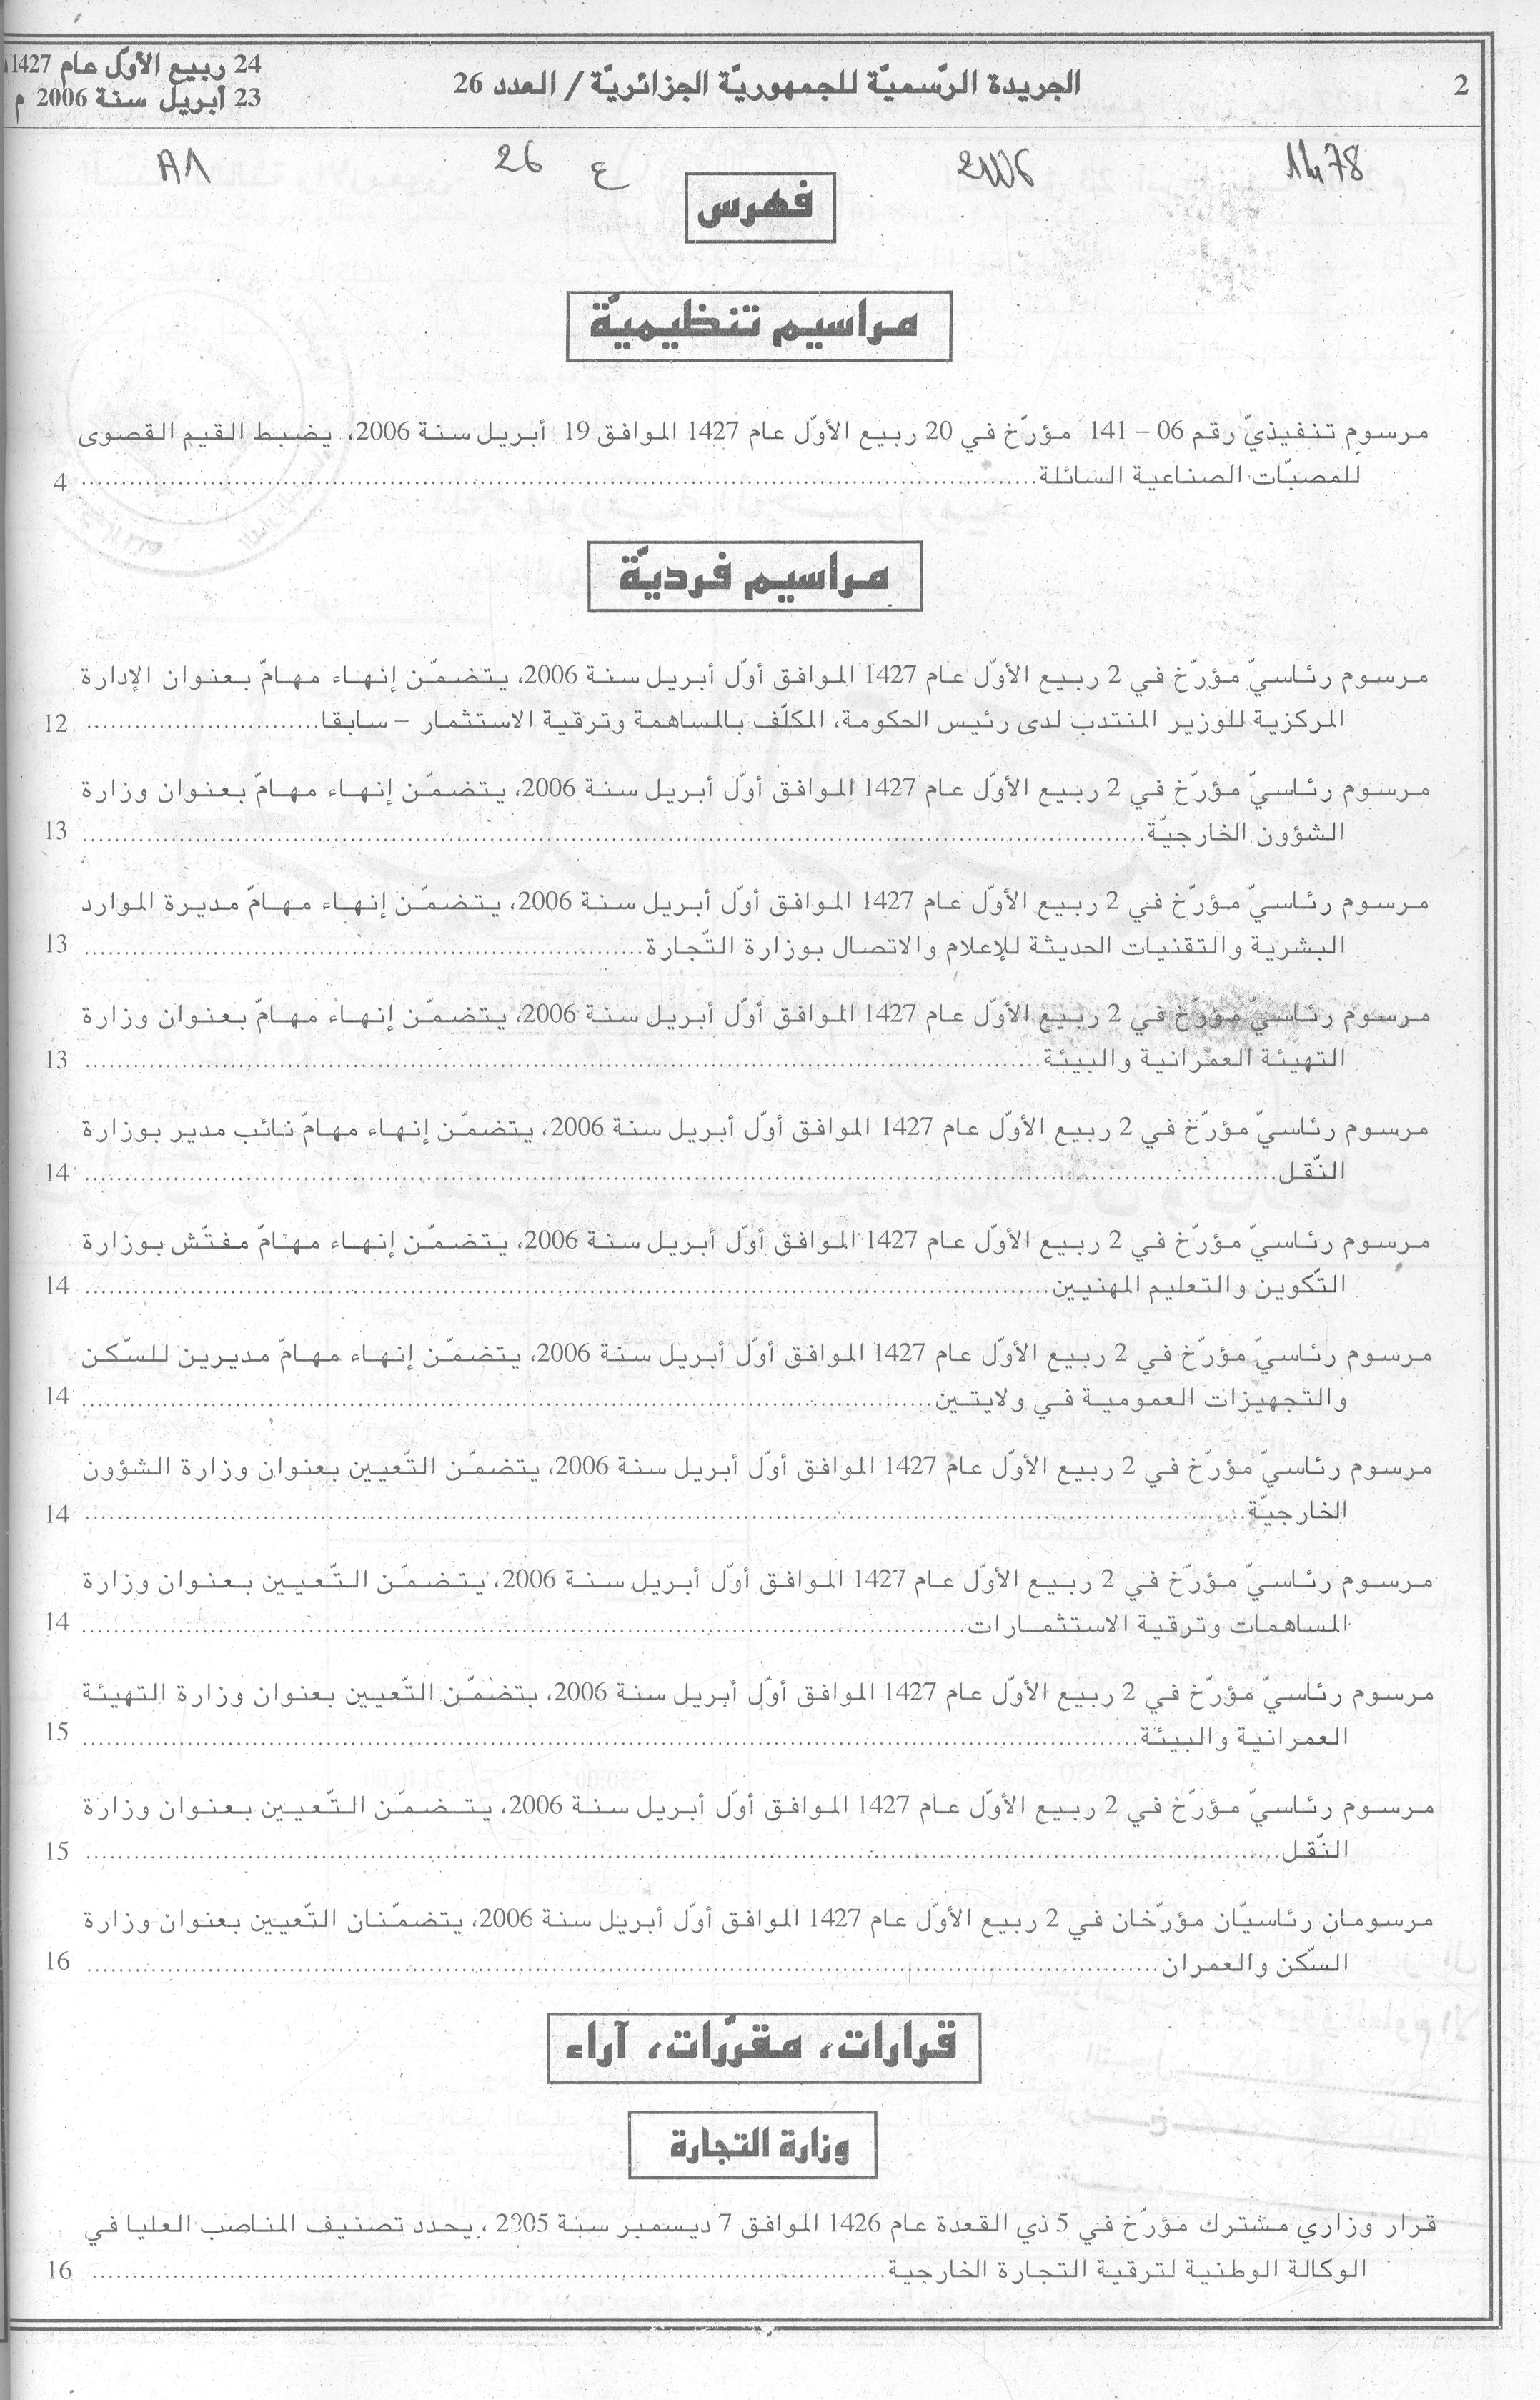 2
الجريدة الرّسميّة للجمهوريّة الجزائريّة / العدد 26
24 ربيع الأوّل عام 1427
23 أبريل سنة 2006 م
2006
ع 26
A1
فهرس
مراسيم تنظيميّة
مرسوم تنفيذيّ رقم 06 – 141 مؤرّخ في 20 ربيع الأوّل عام 1427 الموافق 19 أبريل سنة 2006، يضبط القيم القصوى
للمصبّات الصناعية السائلة........................ 4
مراسيم فرديّة
مرسوم رئاسيّ مؤرّخ في 2 ربيع الأوّل عام 1427 الموافق أوّل أبريل سنة 2006، يتضمّن إنهاء مهامّ بعنوان الإدارة
المركزية للوزير المنتدب لدى رئيس الحكومة، المكلّف بالمساهمة وترقية الاستثمار – سابقا........................ 12
مرسوم رئاسيّ مؤرّخ في 2 ربيع الأوّل عام 1427 الموافق أوّل أبريل سنة 2006، يتضمّن إنهاء مهامّ بعنوان وزارة
الشؤون الخارجيّة........................ 13
مرسوم رئاسيّ مؤرّخ في 2 ربيع الأوّل عام 1427 الموافق أوّل أبريل سنة 2006، يتضمّن إنهاء مهامّ مديرة الموارد
البشرية والتقنيات الحديثة للإعلام والاتصال بوزارة التّجارة........................ 13
مرسوم رئاسيّ مؤرّخ في 2 ربيع الأوّل عام 1427 الموافق أوّل أبريل سنة 2006، يتضمّن إنهاء مهامّ بعنوان وزارة
التهيئة العمرانية والبيئة........................ 13
مرسوم رئاسيّ مؤرّخ في 2 ربيع الأوّل عام 1427 الموافق أوّل أبريل سنة 2006، يتضمّن إنهاء مهامّ نائب مدير بوزارة
النّقل........................ 14
مرسوم رئاسيّ مؤرّخ في 2 ربيع الأوّل عام 1427 الموافق أوّل أبريل سنة 2006، يتضمّن إنهاء مهامّ مفتّش بوزارة
التّكوين والتعليم المهنيين........................ 14
مرسوم رئاسيّ مؤرّخ في 2 ربيع الأوّل عام 1427 الموافق أوّل أبريل سنة 2006، يتضمّن إنهاء مهامّ مديرين للسّكن
والتجهيزات العمومية في ولايتين........................ 14
مرسوم رئاسيّ مؤرّخ في 2 ربيع الأوّل عام 1427 الموافق أوّل أبريل سنة 2006، يتضمّن التّعيين بعنوان وزارة الشؤون
الخارجيّة........................ 14
مرسوم رئاسيّ مؤرّخ في 2 ربيع الأوّل عام 1427 الموافق أوّل أبريل سنة 2006، يتضمّن التّعيين بعنوان وزارة
المساهمات وترقية الاستثمارات........................ 14
مرسوم رئاسيّ مؤرّخ في 2 ربيع الأوّل عام 1427 الموافق أوّل أبريل سنة 2006، يتضمّن التّعيين بعنوان وزارة التهيئة
العمرانية والبيئة........................ 15
مرسوم رئاسيّ مؤرّخ في 2 ربيع الأوّل عام 1427 الموافق أوّل أبريل سنة 2006، يتضمّن التّعيين بعنوان وزارة
النّقل........................ 15
مرسومان رئاسيّان مؤرّخان في 2 ربيع الأوّل عام 1427 الموافق أوّل أبريل سنة 2006، يتضمّنان التّعيين بعنوان وزارة
السّكن والعمران........................ 16
قرارات، مقرّرات، آراء
وزارة التجارة
قرار وزاري مشترك مؤرّخ في 5 ذي القعدة عام 1426 الموافق 7 ديسمبر سنة 2005، يحدد تصنيف المناصب العليا في
الوكالة الوطنية لترقية التجارة الخارجية........................ 16